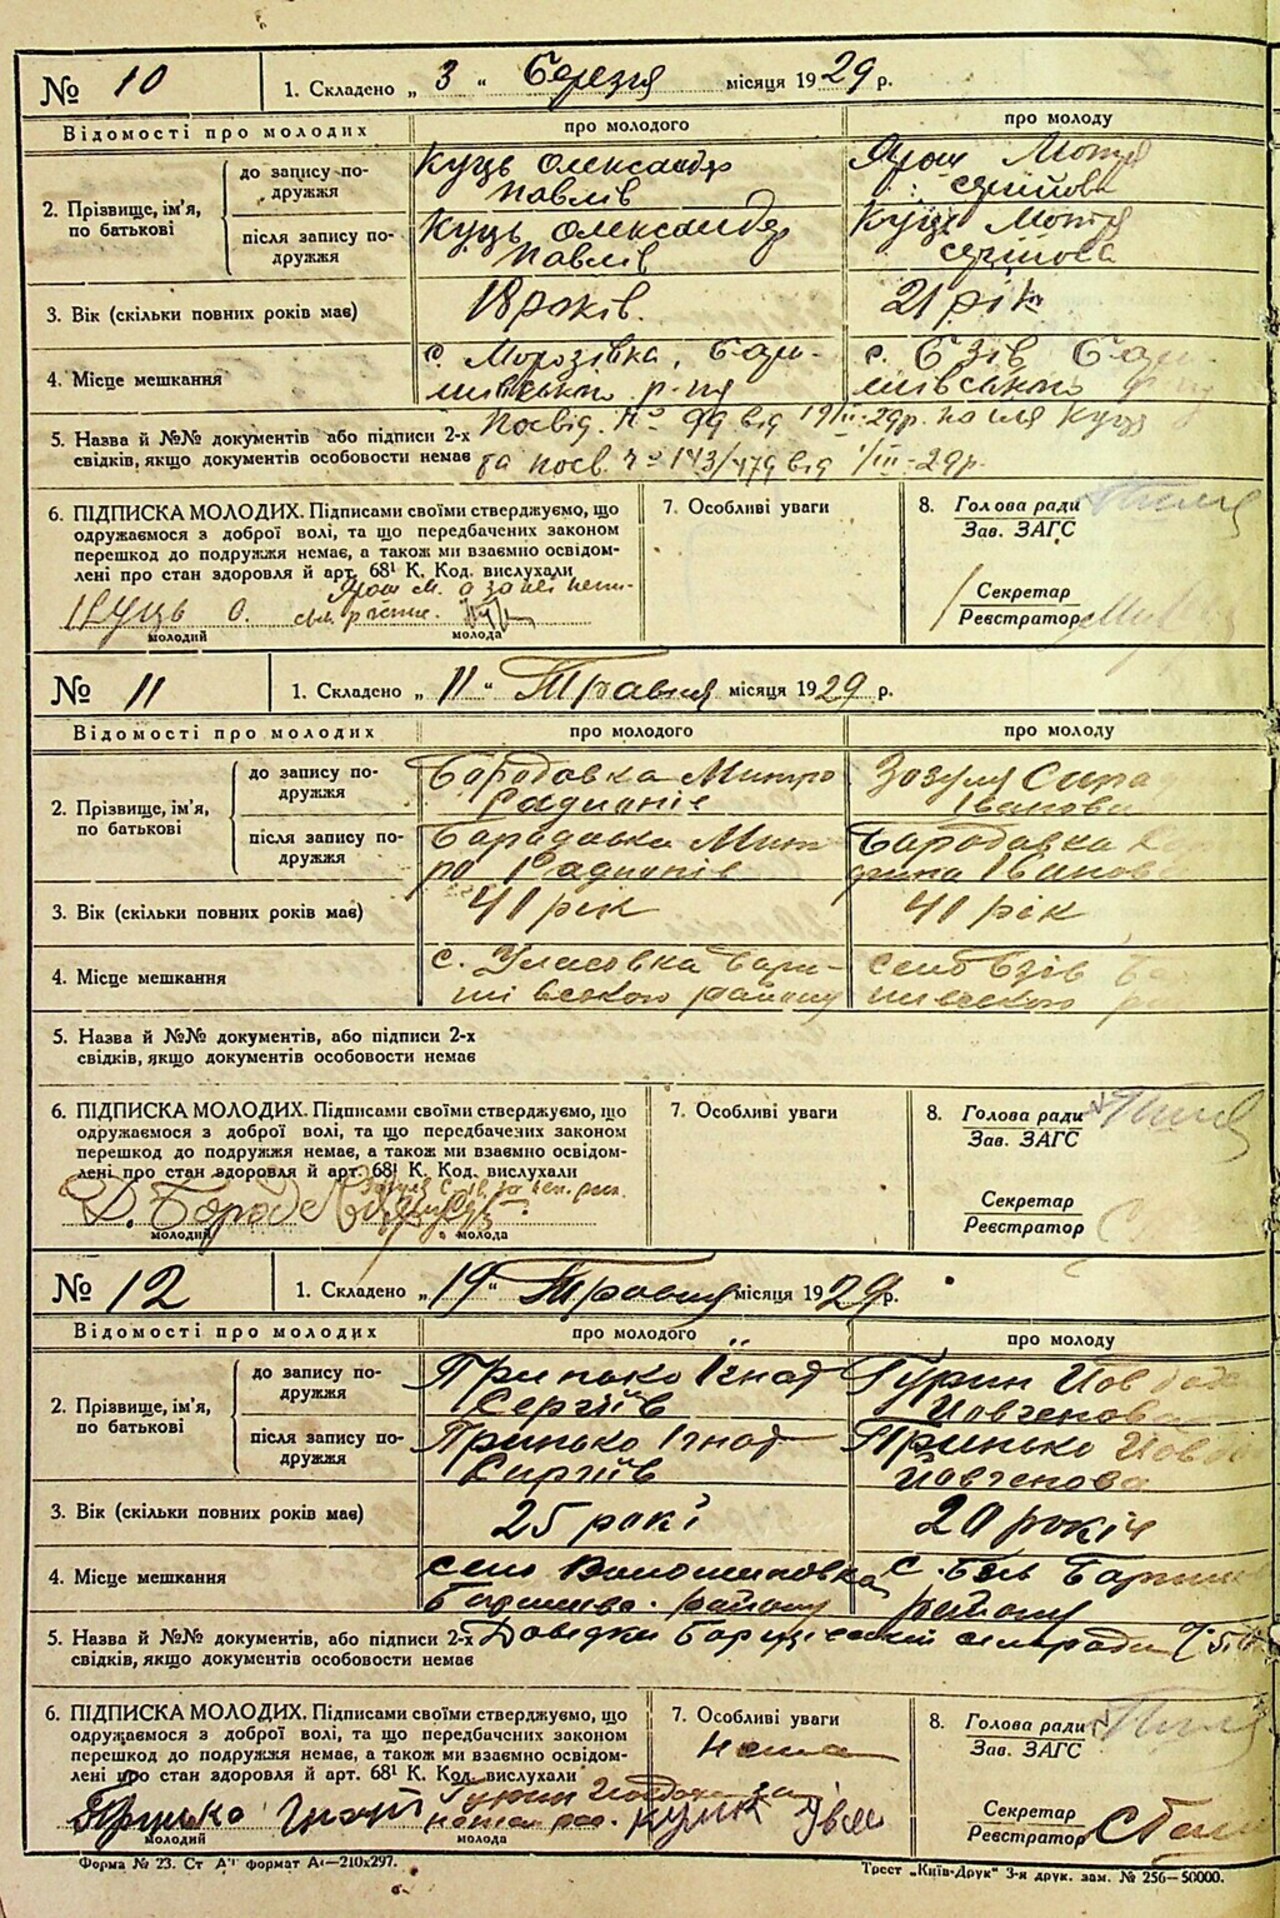 № 10
1. Складено „ 3 “ Березня місяця 1929 р.
Відомості про молодих
про молодого
про молоду
2. Прізвище, ім'я, по батькові
до запису подружжя
Куць Олександр Павлів
Ярош Мотря Сергійова
після запису подружжя
Куць Олександр Павлів
Куць Мотря Сергійова
3. Вік (скільки повних років має)
18 років.
21 рік
4. Місце мешкання
с. Морозівка, Бари-
шівського р-ну
с. Бзів Бари-
шівського р-ну
5. Назва й №№ документів або підписи 2-х
свідків, якщо документів особовости немає
Посвід. № 99 від 19/II-29р. на ім'я Куця
та посв. № 143/479 від 1/III-29р.
6. ПІДПИСКА МОЛОДИХ. Підписами своїми стверджуємо, що
одружаємося з доброї волі, та що передбачених законом
перешкод до подружжя немає, а також ми взаємно освідом-
лені про стан здоровля й арт. 68¹ К. Код. вислухали
Ярош М. а за неї
Куць О.
молодий
молода
7. Особливі уваги
8. Голова ради
Зав. ЗАГС
Секретар
Реєстратор
№ 11
1. Складено „ 11 “ Травня місяця 1929 р.
Відомості про молодих
про молодого
про молоду
2. Прізвище, ім'я, по батькові
до запису подружжя
Бородавка Митро
Радионів
Зозуля
Іванова
після запису подружжя
Барадавка Мит
ро Радионів
Бородавка
Іванова
3. Вік (скільки повних років має)
41 рік
41 рік
4. Місце мешкання
с. Уласовка Бари-
шівского району
село Бзів
шівского
5. Назва й №№ документів, або підписи 2-х
свідків, якщо документів особовости немає
6. ПІДПИСКА МОЛОДИХ. Підписами своїми стверджуємо, що
одружаємося з доброї волі, та що передбачених законом
перешкод до подружжя немає, а також ми взаємно освідом-
лені про стан здоровля й арт. 68¹ К. Код. вислухали
Д. Бород
молодий
молода
7. Особливі уваги
8. Голова ради
Зав. ЗАГС
Секретар
Реєстратор
№ 12
1. Складено „ 19 “ Травня місяця 1929 р.
Відомості про молодих
про молодого
про молоду
2. Прізвище, ім'я, по батькові
до запису подружжя
Принько Ігнат
Сергіїв
Гурин
Йовченова
після запису подружжя
Принько Ігнат
Сиргіїв
Принько
Йовченова
3. Вік (скільки повних років має)
25 рокі
20 років
4. Місце мешкання
село Волошиновка
Баришев. району
с. Бзів Бариш
району
5. Назва й №№ документів, або підписи 2-х
свідків, якщо документів особовости немає
Довідки сельради
6. ПІДПИСКА МОЛОДИХ. Підписами своїми стверджуємо, що
одружаємося з доброї волі, та що передбачених законом
перешкод до подружжя немає, а також ми взаємно освідом-
лені про стан здоровля й арт. 68¹ К. Код. вислухали
Принько Гнат
молодий
молода
7. Особливі уваги
нема
8. Голова ради
Зав. ЗАГС
Секретар
Реєстратор
Форма № 23. Ст А⁴ формат А⁴—210х297.
Трест „Київ-Друк“ 3-я друк. зам. № 256—50000.